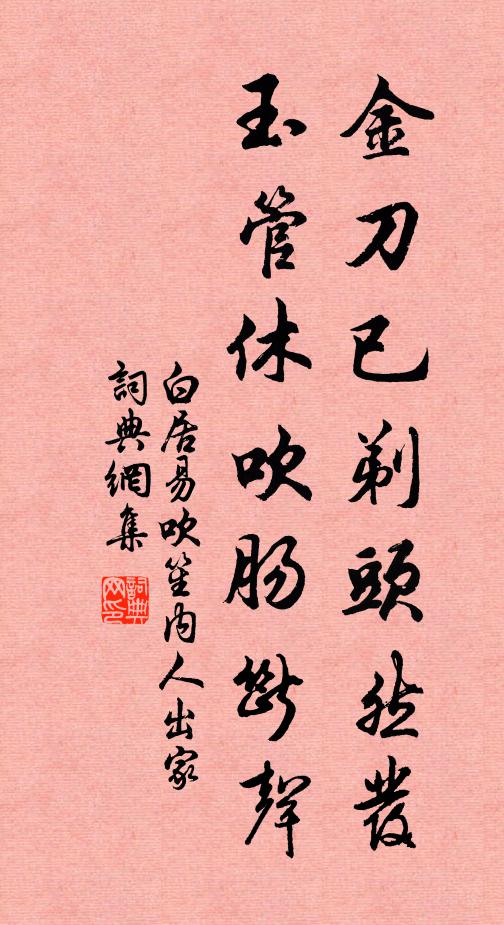 金刀已剃頭然發
玉管休吹肠斷聲
白居易吹笙内人出家
詞典網集
詞典網印